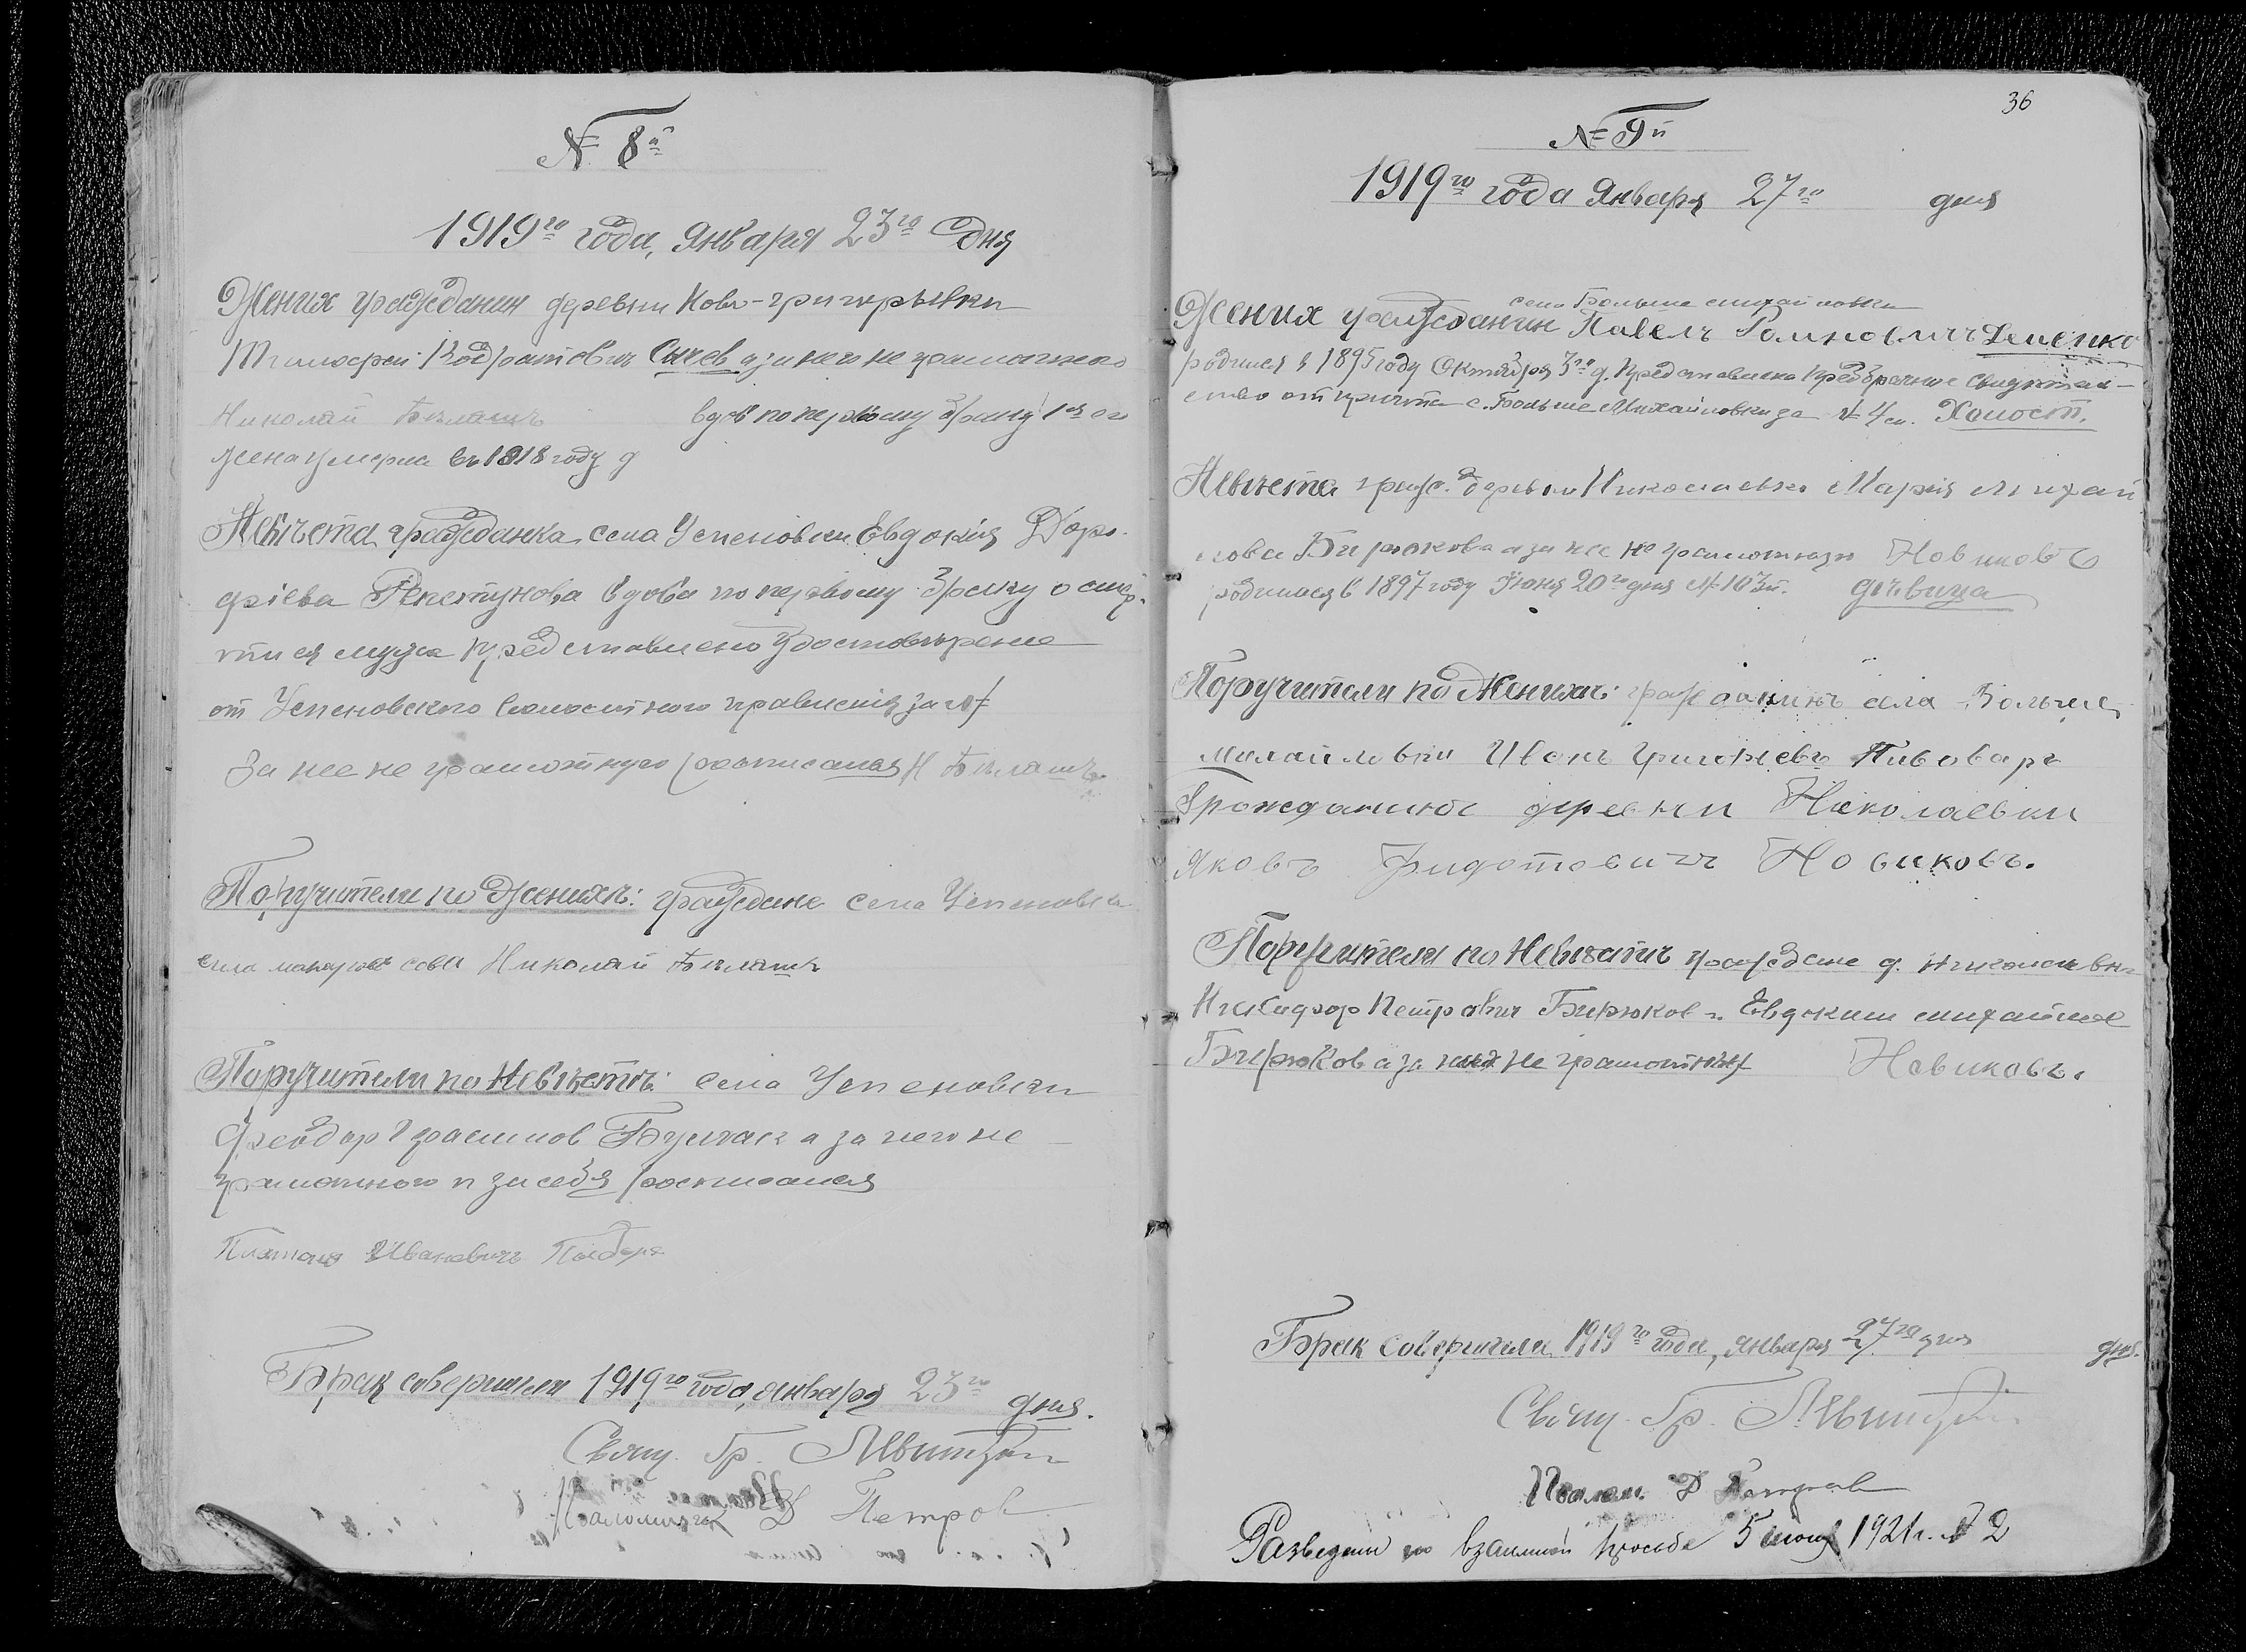 № 8й
1919го года, Января 23го Дня
Жених гражданин деревни Ново-григорьевки
Тимофей Кодратович Сычев а за него не грамотного
Николай Бѣлашъ вдов по первому браку 1я его
жена умерла въ 1918 году
Невѣста гражданка села Успеновки Евдокия Доро-
фіева Репетунова вдова по первому браку о смер-
ти ея мужа представлено удостовѣрение
от Успеновского волостного правления за №
За нее не грамотную росписался Н Бѣлашъ
Поручители по Женихѣ: граждане села Успеновки
села Николай Бѣлашъ
Поручители по Невѣстѣ: села Успеновки
Феодор Герасимов а за него не
грамотного и за себя росписался
Иванович
Брак совершили 1919го года, января 23го дня.
Свящ. Гр.
Псаломщик Д Петров
36
№ 9й
1919го года Января 27го дня
села Больше михайловки
Жених гражданин Павелъ Деменко
родился в 1895 году Октября 3го д. Представлено Предбрачное Свидетель-
ство от причта с. Больше Михайловки за № 4м. Холост.
Невѣста граж. деревни Николаевки Мария Михай
лова Бирюкова а за нее не грамотную Новиковъ
родилася в 1897 году Июня 20го дня № 103й. дѣвица
Поручители по Женихѣ: гражданинъ села Больше
михайловки Иванъ Григорьевъ Пивоваръ
Гражданинъ деревни Николаевки
Яковъ Новиковъ.
Поручители по Невѣстѣ граждане д. Николаевки
Никифор Петрович Бирюков и Евдоким михайлов
Бирюков а за них не грамотных Новиковъ.
Брак Совершили 1919го года, января 27го дня дня.
Свящ. Гр.
Псалом. Д Петров
Разведены по взаимной просьбе 5 1921 г. № 2